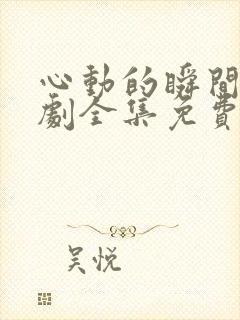 心動的瞬間
劇全集免費
吴悦